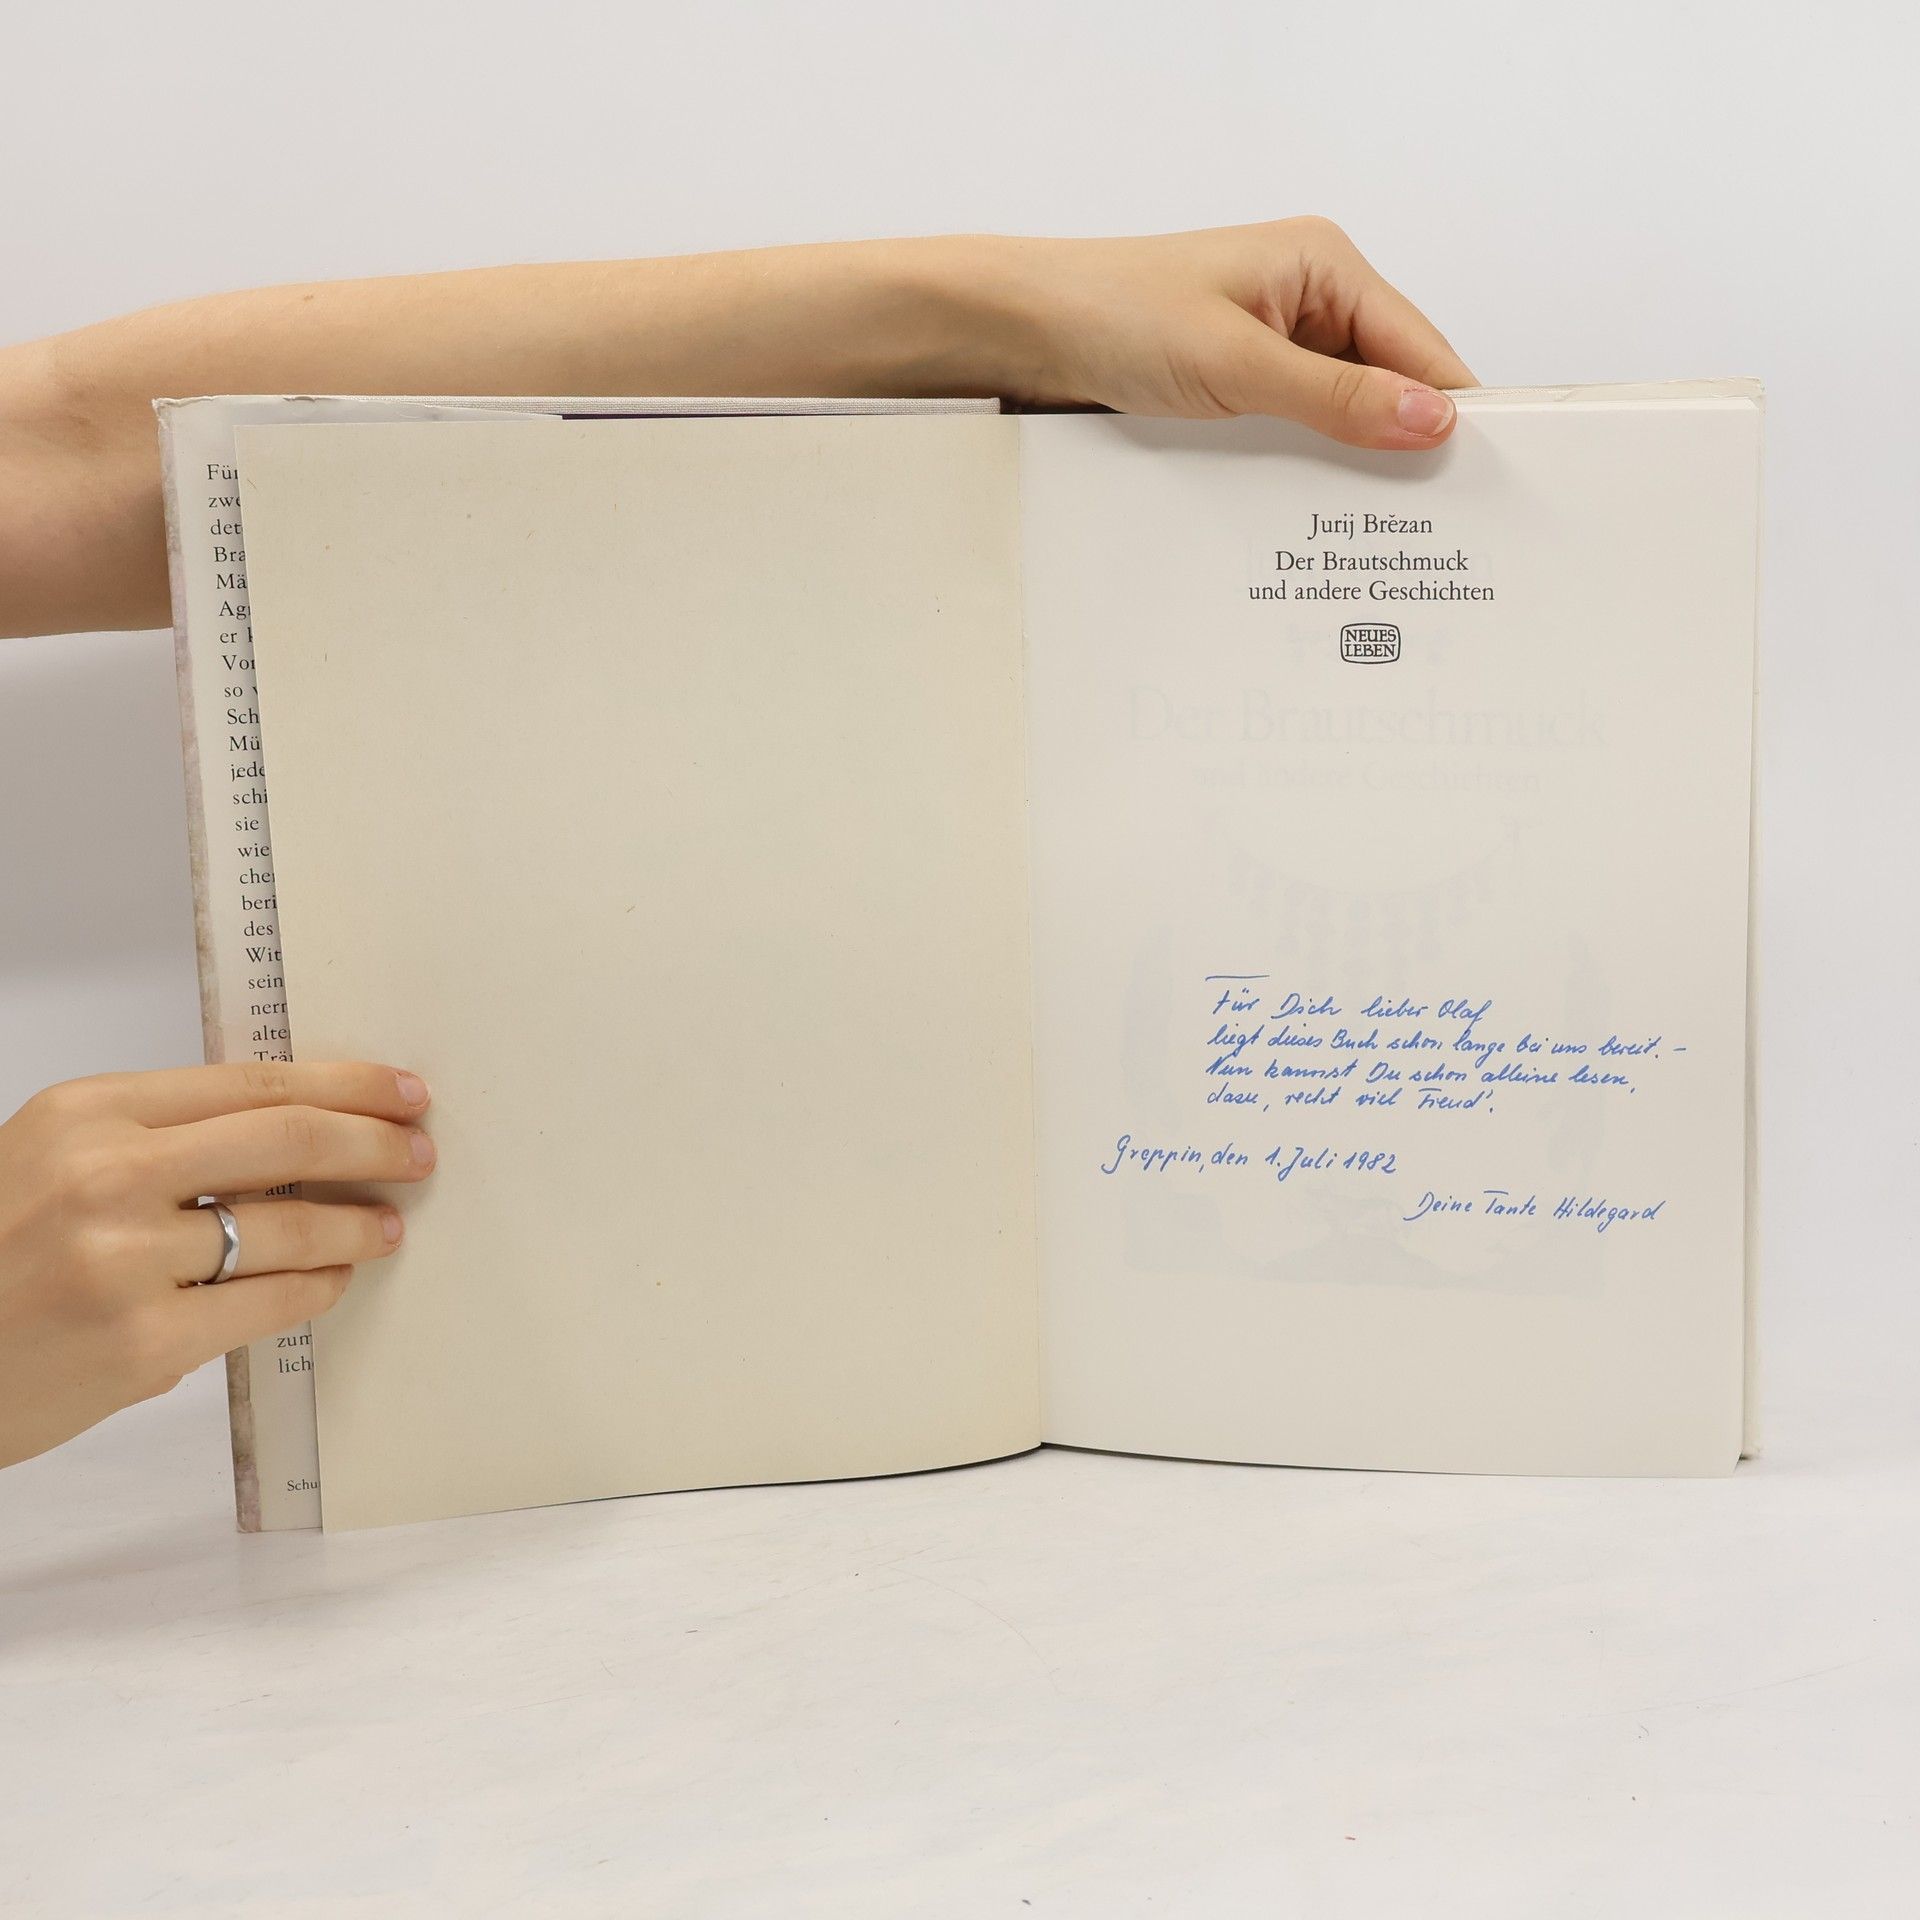 Für
zwe
det
Bra
Mä
Ag
er
Vor
so
Sch
Mü
jede
schi
sie
wie
cher
beri
des
Wit
sein
nern
alte
Trä
auf
zum
lich
Schu
Jurij Brězan
Der Brautschmuck
und andere Geschichten
NEUES
LEBEN
Der Brautschmuck
und andere Geschichten
Für Dich lieber Olaf
liegt dieses Buch schon lange bei uns bereit. –
Nun kannst Du schon alleine lesen,
dazu, recht viel Freud'.
Greppin, den 1. Juli 1982
Deine Tante Hildegard